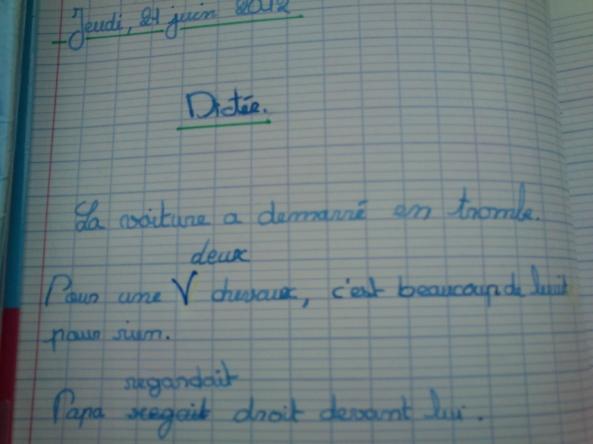 Jeudi, 21 juin 2012
Dictée.
La voiture a demarré en trombe.
deux
Pour une V chevaux, c'est beaucoup de bruit
pour rien.
regardait
Papa regait droit devant lui.